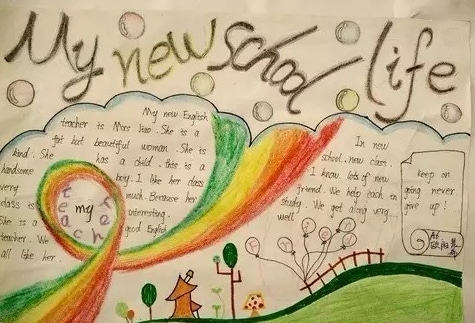 My new school life
My new English
teacher is Miss Hao. She is a
fat but beautiful woman. She is
kind. She has a child. this is a
handsome boy. I like her class
very much. Because her
class is interesting.
She is a good English
teacher. We
all like her.
teacher
my
In new
school. new class.
I know lots of new
friend. We help each in
study. We get along very
well.
keep on
going never
give up!